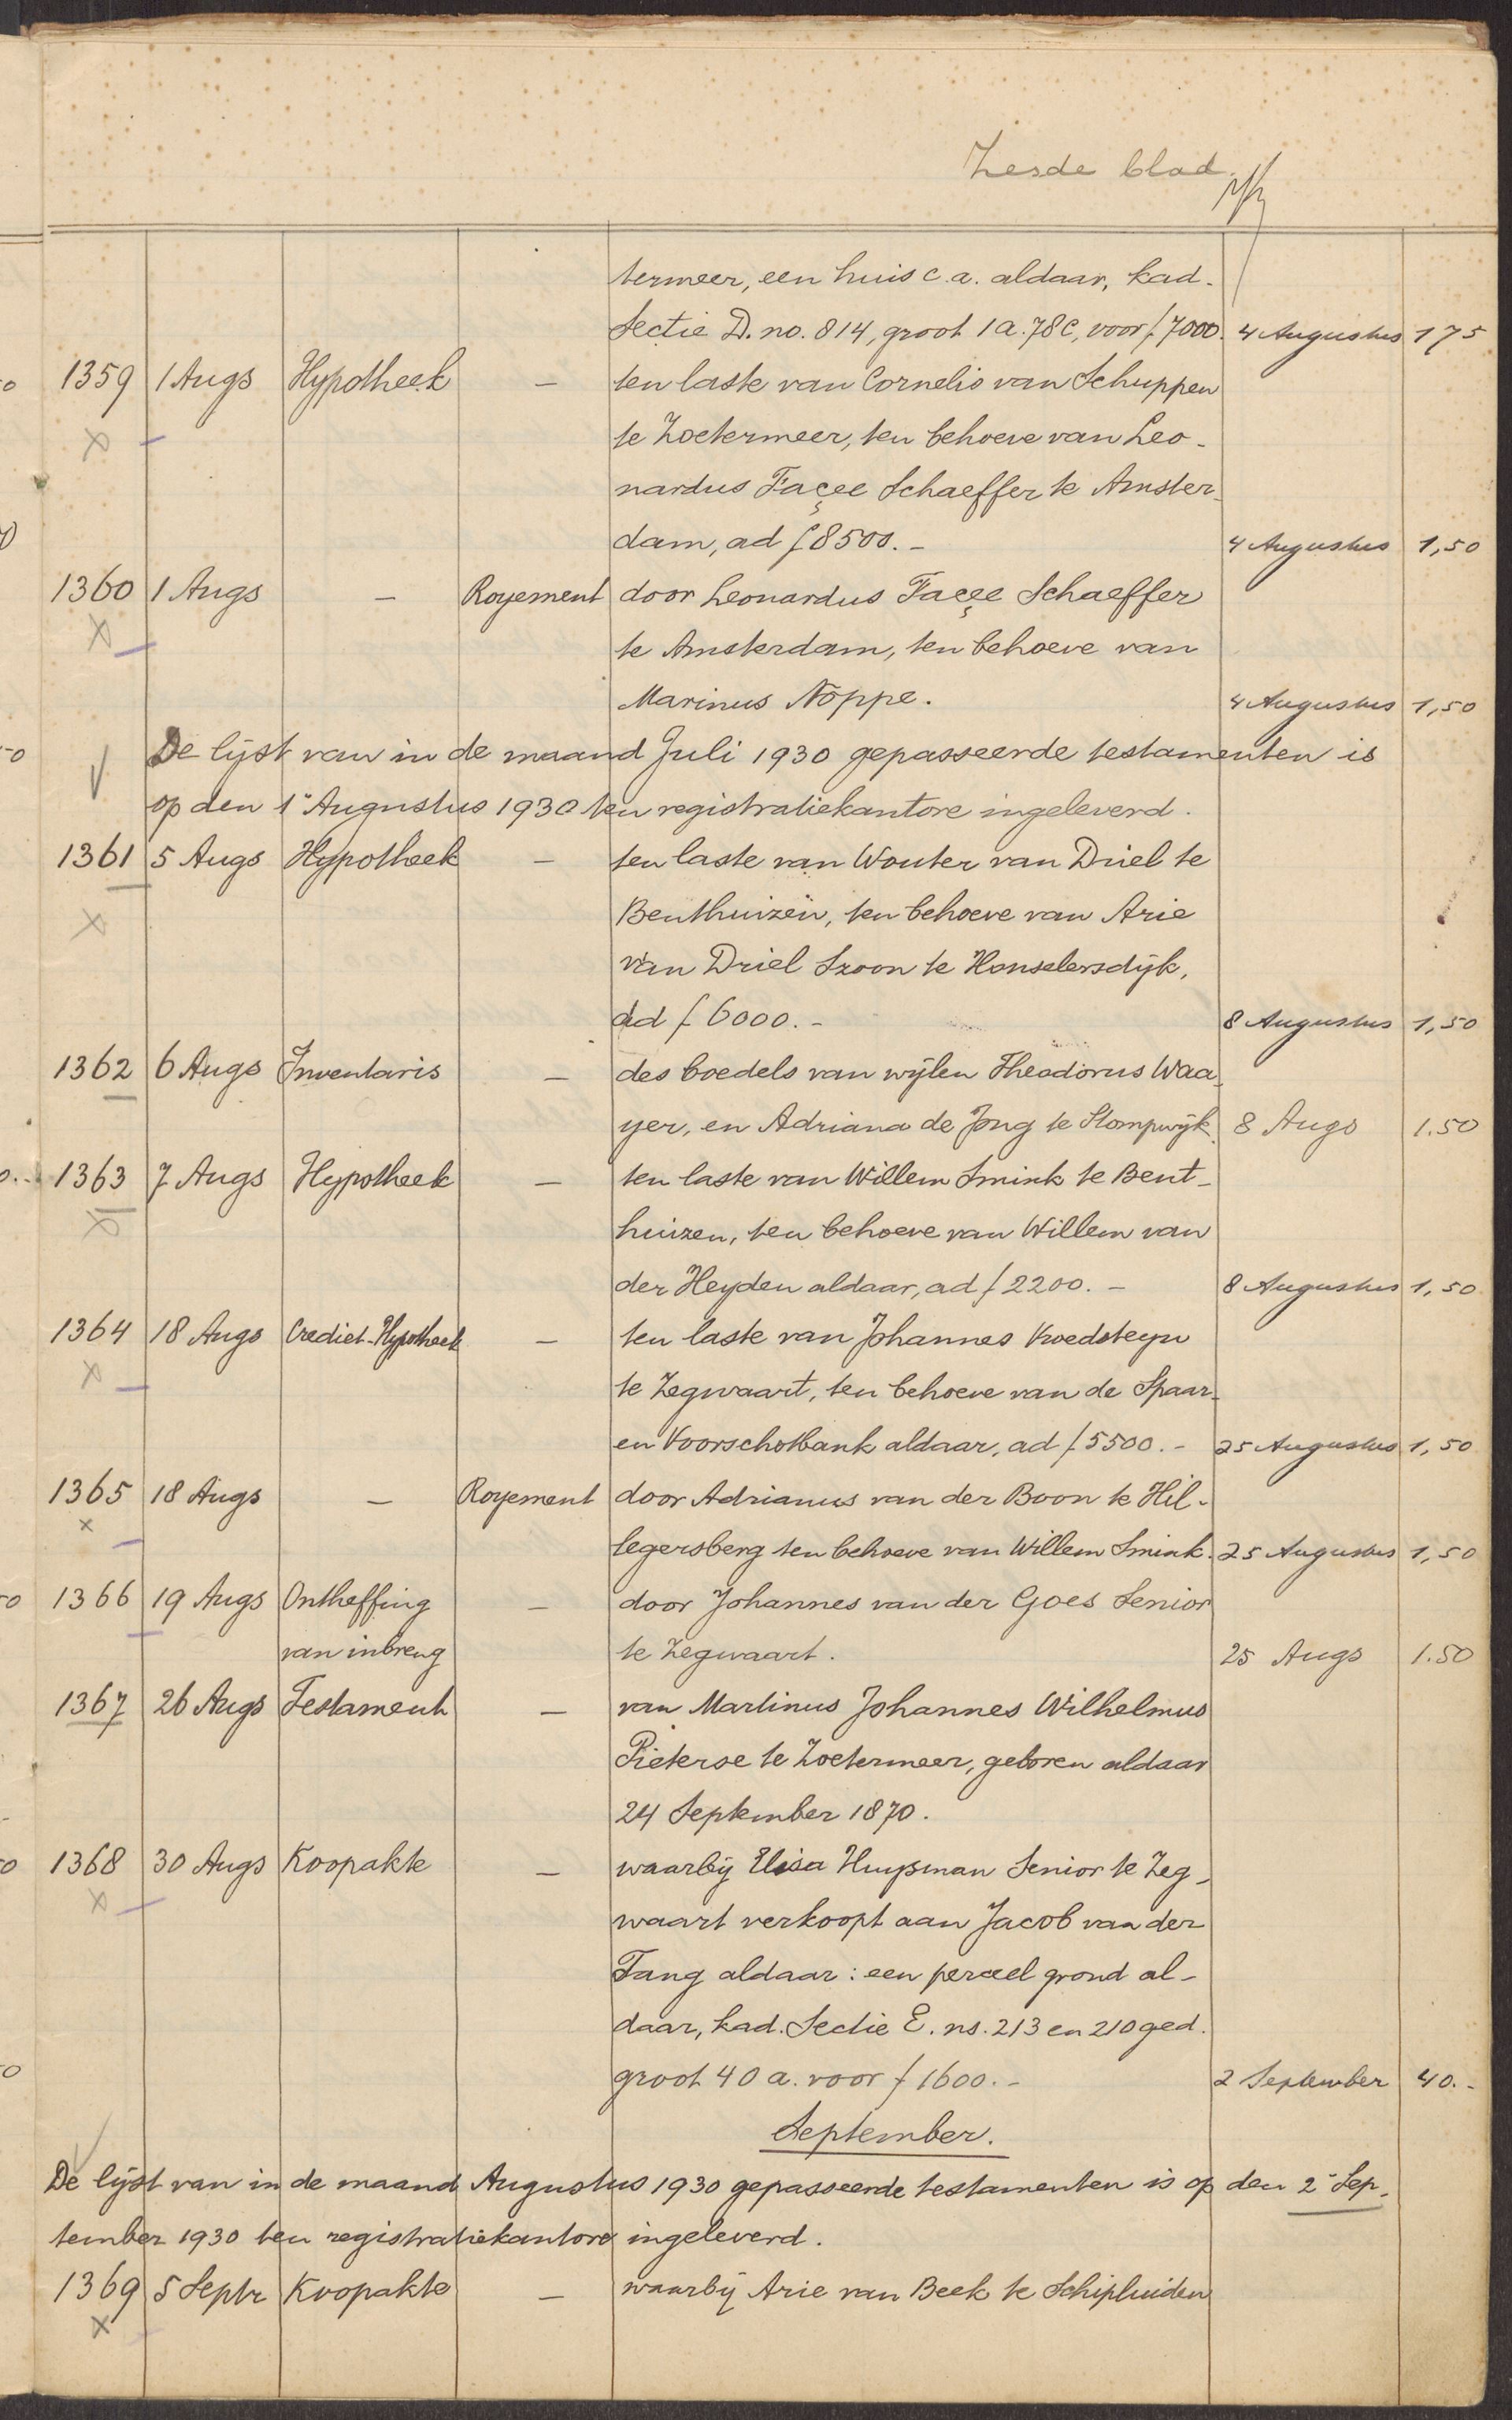 Zesde blad.
termeer, een huis c.a. aldaar, kad.
Sectie D. no. 814, groot 1 a. 78 c, voor f 7000. 4 Augustus 175
1359 1 Augs Hypotheek — ten laste van Cornelis van Schuppen
te Zoetermeer, ten behoeve van Leo-
nardus Façee Schaeffer te Amster-
dam, ad f 8500.- 4 Augustus 1,50
1360 1 Augs — Royement door Leonardus Façee Schaeffer
te Amsterdam, ten behoeve van
Marinus Noppe. 4 Augustus 1,50
De lijst van in de maand Juli 1930 gepasseerde testamenten is
op den 1n Augustus 1930 ten registratiekantore ingeleverd.
1361 5 Augs Hypotheek — ten laste van Wouter van Driel te
Benthuizen, ten behoeve van Arie
van Driel Szoon te Honselersdijk,
ad f 6000.- 8 Augustus 1,50
1362 6 Augs Inventaris — des boedels van wijlen Theodorus Waa-
yer, en Adriana de Jong te Stompwijk 8 Augs 1.50
1363 7 Augs Hypotheek — ten laste van Willem Smink te Bent-
huizen, ten behoeve van Willem van
der Heyden aldaar, ad f 2200.- 8 Augustus 1,50
1364 18 Augs Crediet-Hypotheek — ten laste van Johannes Kroedsteyn
te Zegwaart, ten behoeve van de Spaar-
en Voorschotbank aldaar, ad f 5500.- 25 Augustus 1,50
1365 18 Augs — Royement door Adrianus van der Boon te Hil-
legersberg ten behoeve van Willem Smink. 25 Augustus 1,50
1366 19 Augs Ontheffing — door Johannes van der Goes Senior
van inbreng te Zegwaart. 25 Augs 1.50
1367 26 Augs Testament — van Martinus Johannes Wilhelmus
Pieterse te Zoetermeer, geboren aldaar
24 September 1870.
1368 30 Augs Koopakte — waarbij Elisa Huysman Senior te Zeg-
waart verkoopt aan Jacob van der
Tang aldaar: een perceel grond al-
daar, kad. Sectie E. ns. 213 en 210 ged.
groot 40 a. voor f 1600.- 2 September 40.-
September.
De lijst van in de maand Augustus 1930 gepasseerde testamenten is op den 2n Sep-
tember 1930 ten registratiekantore ingeleverd.
1369 5 Septr Koopakte — waarbij Arie van Beek te Schipluiden